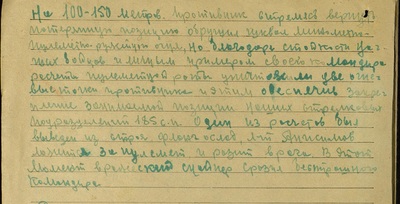 На 100-150 метров. Противник стремясь вернуть
потерянную позицию обрушил шквал минометно-
пулеметно-ружейного огня, но благодаря стойкости на-
ших бойцов и личным примером своего командира
расчеты пулеметной роты уничтожили две огне-
вых точки противника и этим обеспечив закре-
пление занимаемой позиции наших стрелковых
подразделений 185 с.п. Один из расчетов был
выведен из строя фланг ослаб, л-т Анисимов
ложится за пулемет и разит врага. В этот
момент вражеский снайпер сразил бесстрашного
командира